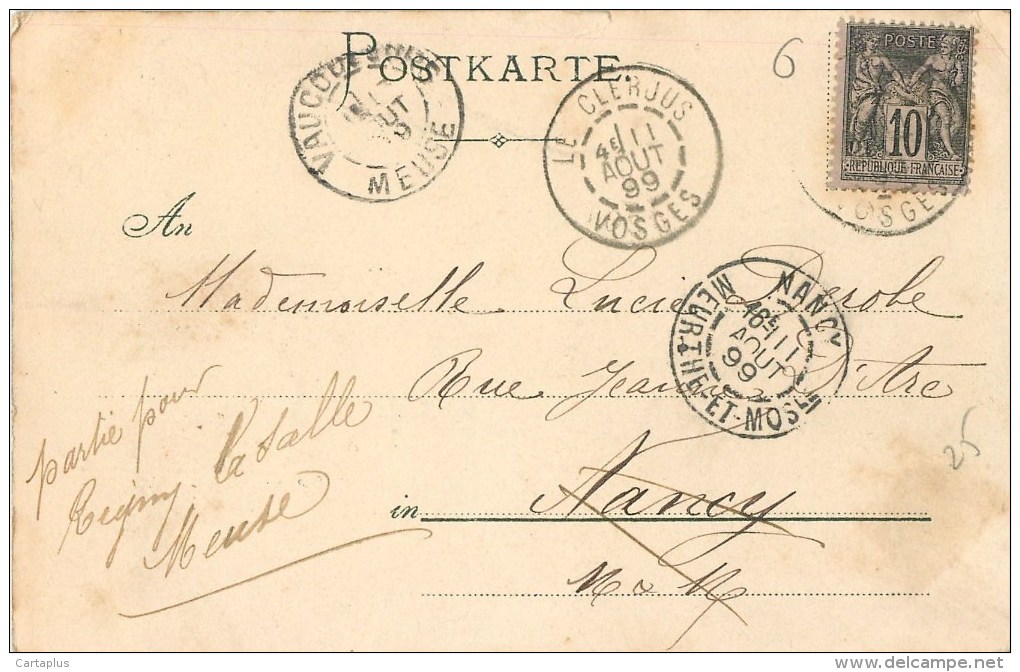 POSTKARTE.
VAUCOULEURS
AOUT
MEUSE
LE CLERJUS
4E 11
AOUT
99
VOSGES
6
POSTE
10
REPUBLIQUE FRANÇAISE
VOSGES
An
Mademoiselle Lucie Derobe
Rue Jeanne D'Arc
in Nancy
M & M
NANCY
16E 11
AOUT
99
MEURTHE-ET-MOSELLE
partie pour
Rigny la Salle
Meuse
25
Cartaplus
www.delcampe.net